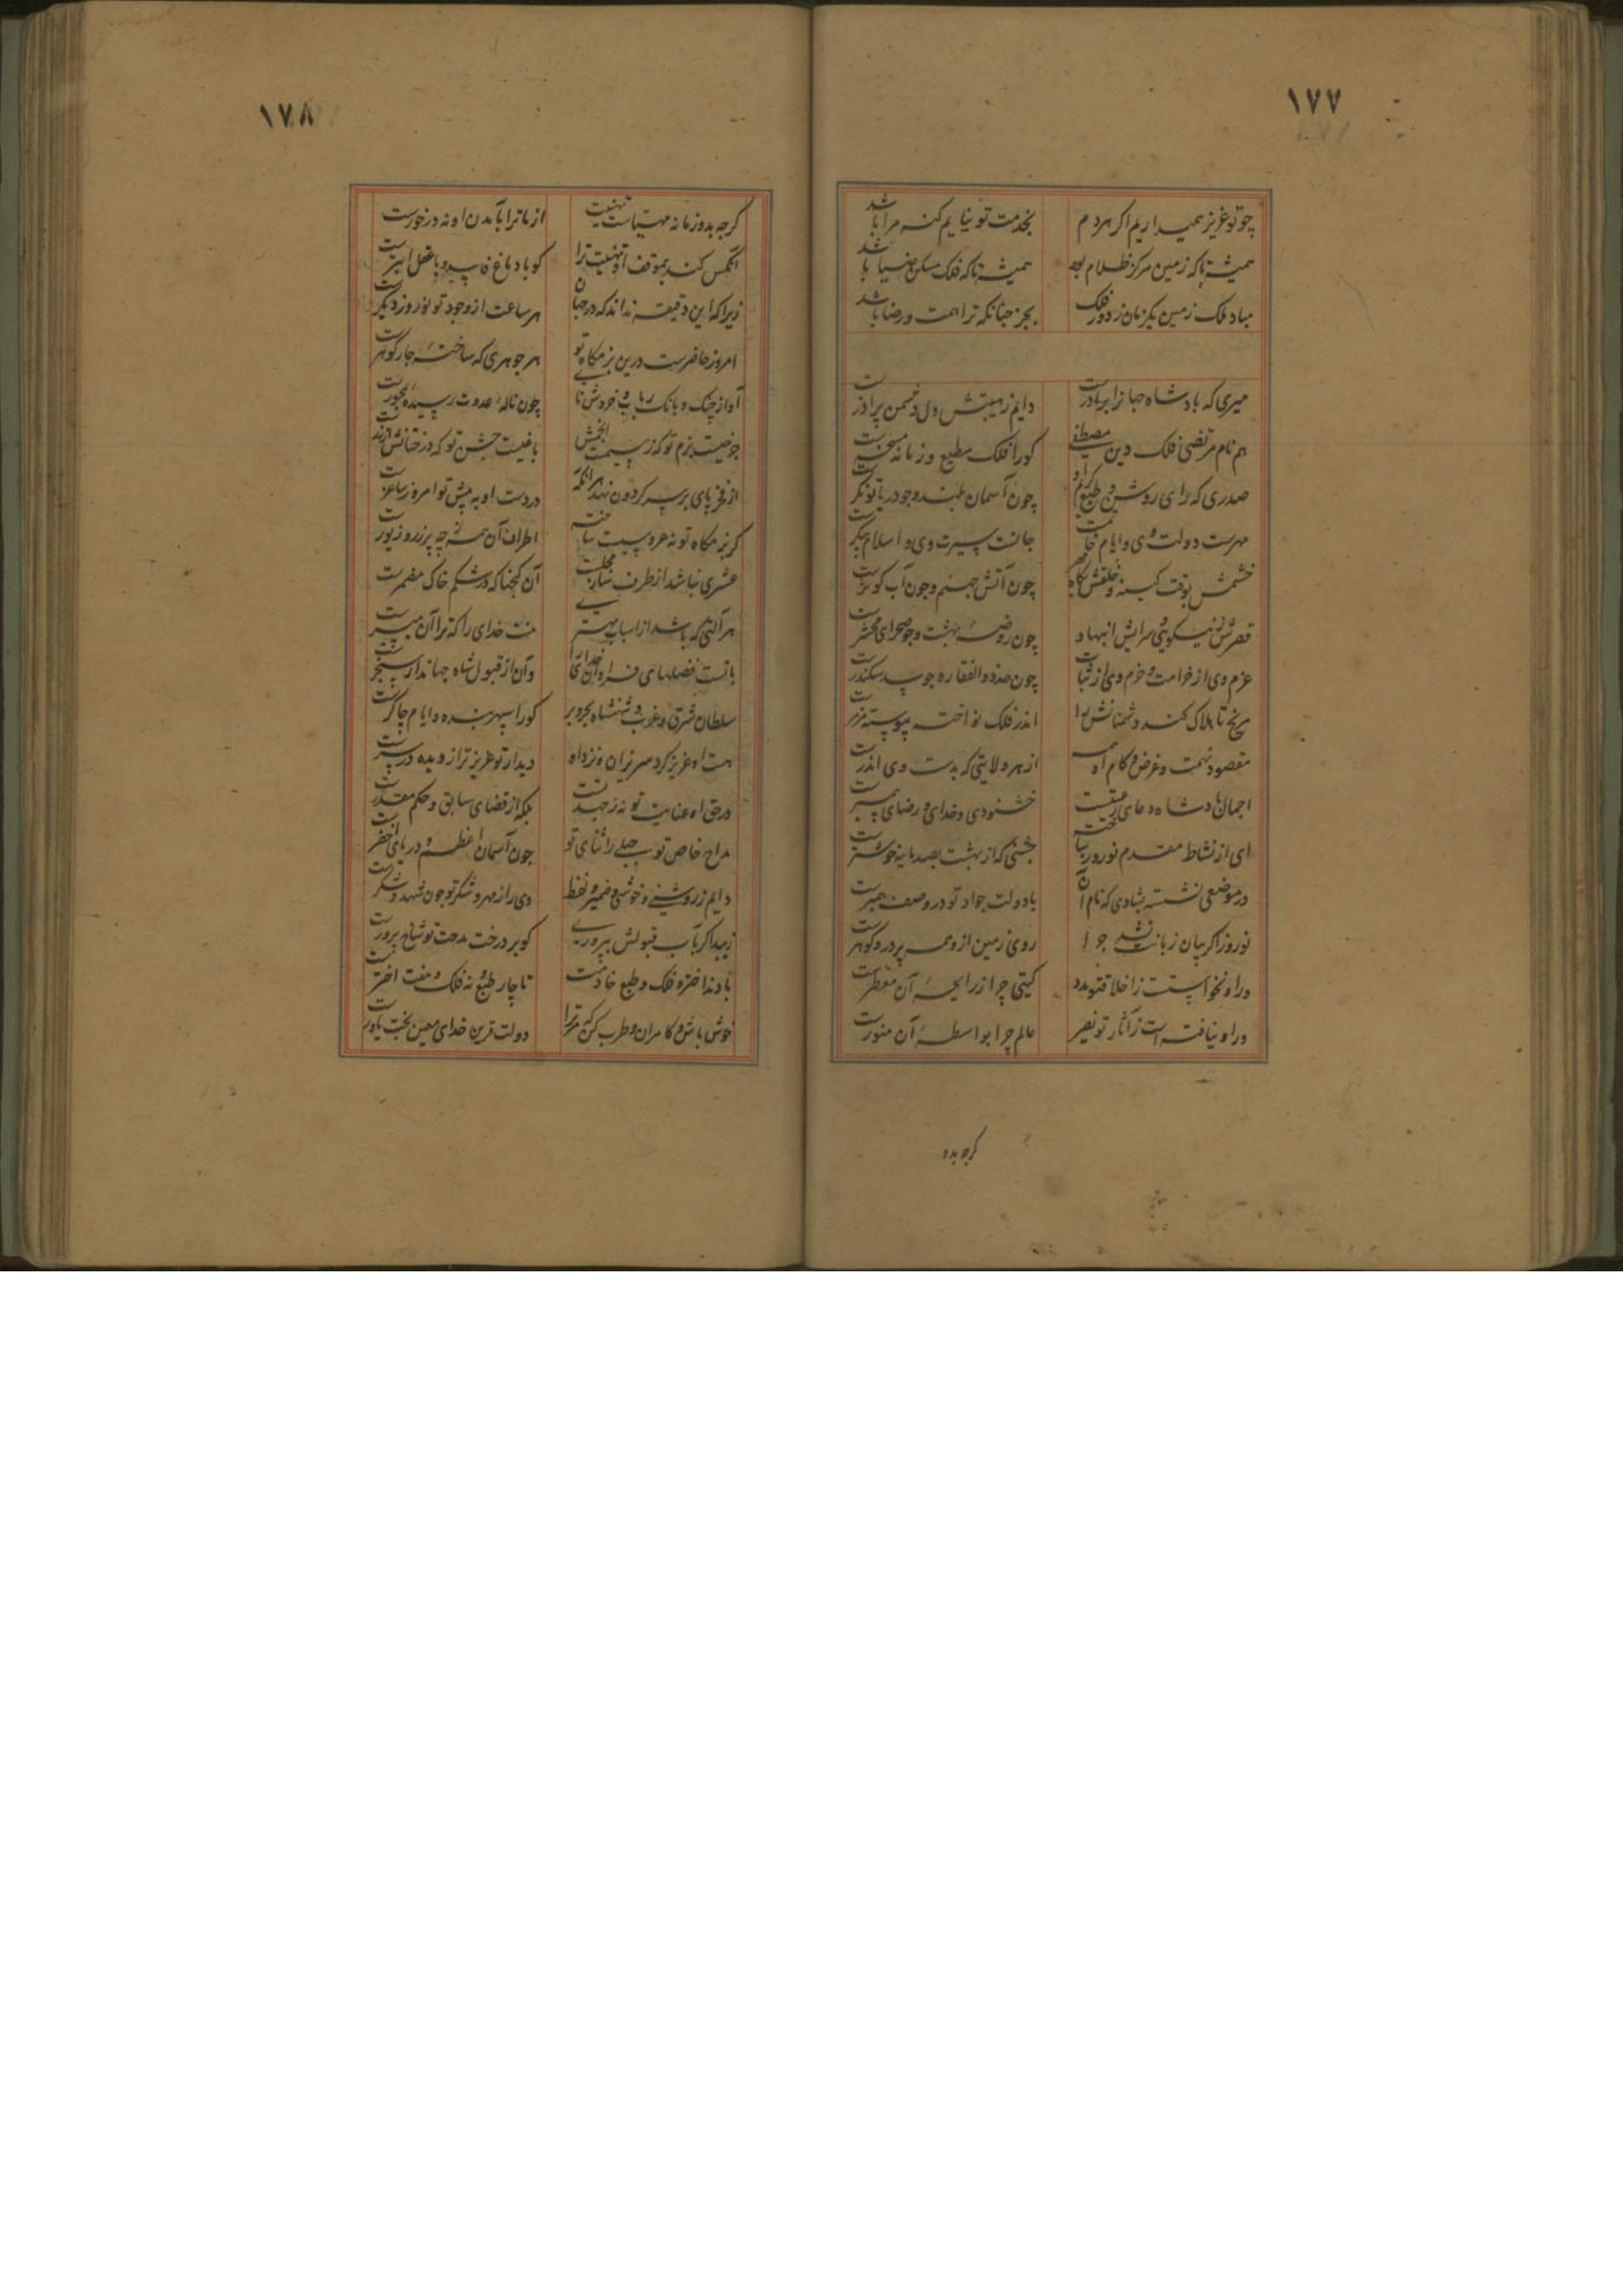 ۱۷۷
چو تو عزیز همیداریم اگر هر دم بخدمت تو نیایم کنه مرا باشد
همیشه تا که زمین مرکز ظلام بود همیشه تا که فلک مسکن ضیا باشد
مباد ملک زمین یکزمان ز دور فلک بجز چنانکه ترا همت و رضا باشد
میری که بادشاه جهانرا برادرست دایم ز هیبتش دل دشمن پر آذرست
هم نام مرتضی فلک دین مصطفی کورا فلک مطیع و زمانه مسخرست
صدری که رای روشن و طبع کریم او چون آسمان بلند و چو دریا تونگرست
مهرست دولت وی و ایام خاتمست جانست سیرت وی و اسلام پیکرست
خشمش بوقت کینه و خلقش بگاه مهر چون آتش جهنم و چون آب کوثرست
قصرش ز نیکوئی و سرایش ز انبهاد چون روضهٔ بهشت و چو صحرای محشرست
عزم وی از خرامت و حزم وی از ثبات چون حد ذوالفقار و چو سد سکندرست
مریخ تا هلاک کند دشمنانش را اندر فلک نواخته پیوسته خنجرست
مقصود نهمت و غرض و کام او همه از هر ولایتی که بدست وی اندرست
اجمان بادشاه و دعای رعیتست خشنودی خدای و رضای پیمبرست
ای از نشاط مقدم نوروز ساخته جشنی که از بهشت بصد مایه خوشترست
در موضعی نشسته بشادی که نام آن با دولت جواد تو در وصف همبرست
نوروز اگر بیان زبانت نشد چرا روی زمین ازو همه پر در و گوهرست
ور او نخواستست ز اخلاق تو مدد گیتی چرا ز رایحهٔ آن معطرست
ور او نیافته است ز آثار تو نصیر عالم چرا بواسطهٔ آن منورست
گرچه بدو
۱۷۸
گرچه بدو زمانه مهیاست تهنیت از ما ترا بآمدن او نه درخورست
آنکس کند بموقف او تهنیت ترا کو با دماغ فاسد و با عقل ابترست
زیرا که این دقیقه نداند که در جهان هر ساعت از وجود تو نوروز دیگرست
امروز حاضرست درین بزمگاه تو هر جوهری که ساختهٔ چار گوهرست
آواز چنگ و بانک رباب و خروش نای چون نالهٔ عدوت رسیده بمحورست
چرخیست بزم تو که ز سیمست انجمش باغیست جشن تو که درختانش از زرست
از فخر پای بر سر گردون نهد هر آنکه در دست او به پیش تو امروز ساغرست
گر بزمگاه تو نه عروسیست ساخته اطراف آن همه ز چه پر زر و زیورست
عشری نباشد از طرف ساز مجلست آن گنجها که در شکم خاک مضمرست
هر آلتی که باشد از اسباب بهتری منت خدای را که ترا آن میسرست
با تست فضلهای فراوان خدای را وآن از قبول شاه جهاندار سنجرست
سلطان شرق و غرب و شهنشاه بحر و بر کورا سپهر بنده و ایام چاکرست
هست او عزیز کرد میر یزان و نزد او دیدار تو عزیزتر از دیده در سرست
در حق او عنایت تو نه ز جهد تست بلکه از قضای سابق و حکم مقدرست
مداح خاص تو جبلی را ثنای تو چون آسمان اعظم و دریای اخضرست
دایم ز روشنی و خوشی ضمیر و لفظ وی را ز مهر و شکر تو چون شهد و شکرست
زیبد اگر بآب قبولش بپروری کو بر درخت مدحت تو شاخ پرورست
تا چار طبع و نه فلک و هفت اخترست
خوش باش و کامران و طرب کن که مر ترا دولت قرین خدای معین بخت یاورست